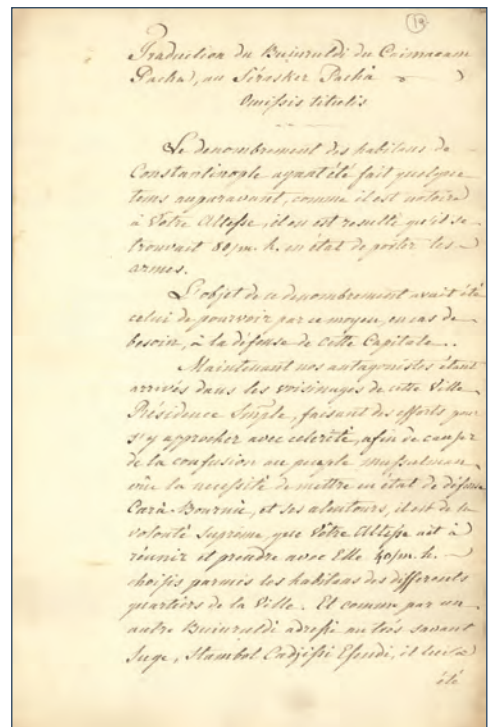 19
Traduction du Buiuruldi du Caimacam
Pacha, au Sérasker Pacha
Omissis titulis
Le denombrement des habitans de
Constantinople ayant été fait quelque
tems auparavant, comme il est notoire
à Votre Altesse, il en est resulté qu'il se
trouvait 80/m. h. en état de porter les
armes.
L'objet de ce denombrement avait été
celui de pourvoir par ce moyen, en cas de
besoin, à la défense de cette Capitale.
Maintenant nos antagonistes étant
arrivés dans les voisinages de cette Ville
Résidence Imple, faisant des efforts pour
s'y approcher avec celerité, afin de causer
de la confusion au peuple musulman,
vûe la necessité de mettre en état de défense
Cara-Bournu, et ses alentours, il est de la
volonté Suprème, que Votre Altesse ait à
réunir et prendre avec Elle 40/m. h.
choisis parmis les habitans des differents
quartiers de la Ville. Et comme par un
autre Buiuruldi adressé au très savant
Juge, Stambol Cadjissi Efendi, il lui a
été